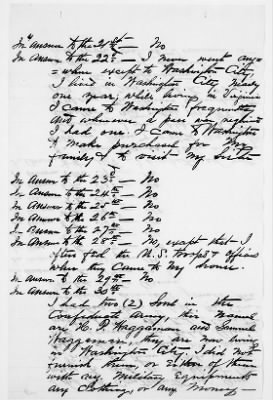 In Answer to the 21st — No
In Answer to the 22d — I never went any=
=where except to Washington City,
I lived in Washington City nearly
one year, while living in Virginia
I came to Washington frequently
and whenever a pass was required
I had one. I came to Washington
to make purchases for my
family & to visit my sister
In Answer to the 23d — No
In Answer to the 24th — No
In Answer to the 25th — No
In Answer to the 26th — No
In Answer to the 27th — No
In Answer to the 28th — No, except that I
often fed the U.S. troops & officers
when they came to my house.
In Answer to the 29th — No
In Answer to the 30th
I had two (2) Sons in the
Confederate Army, their names
are H. P. Waggaman and Samuel
Waggaman, they are now living
in Washington City. I did not
furnish them, or either of them
with any Military equipments
any Clothing, or any Money —